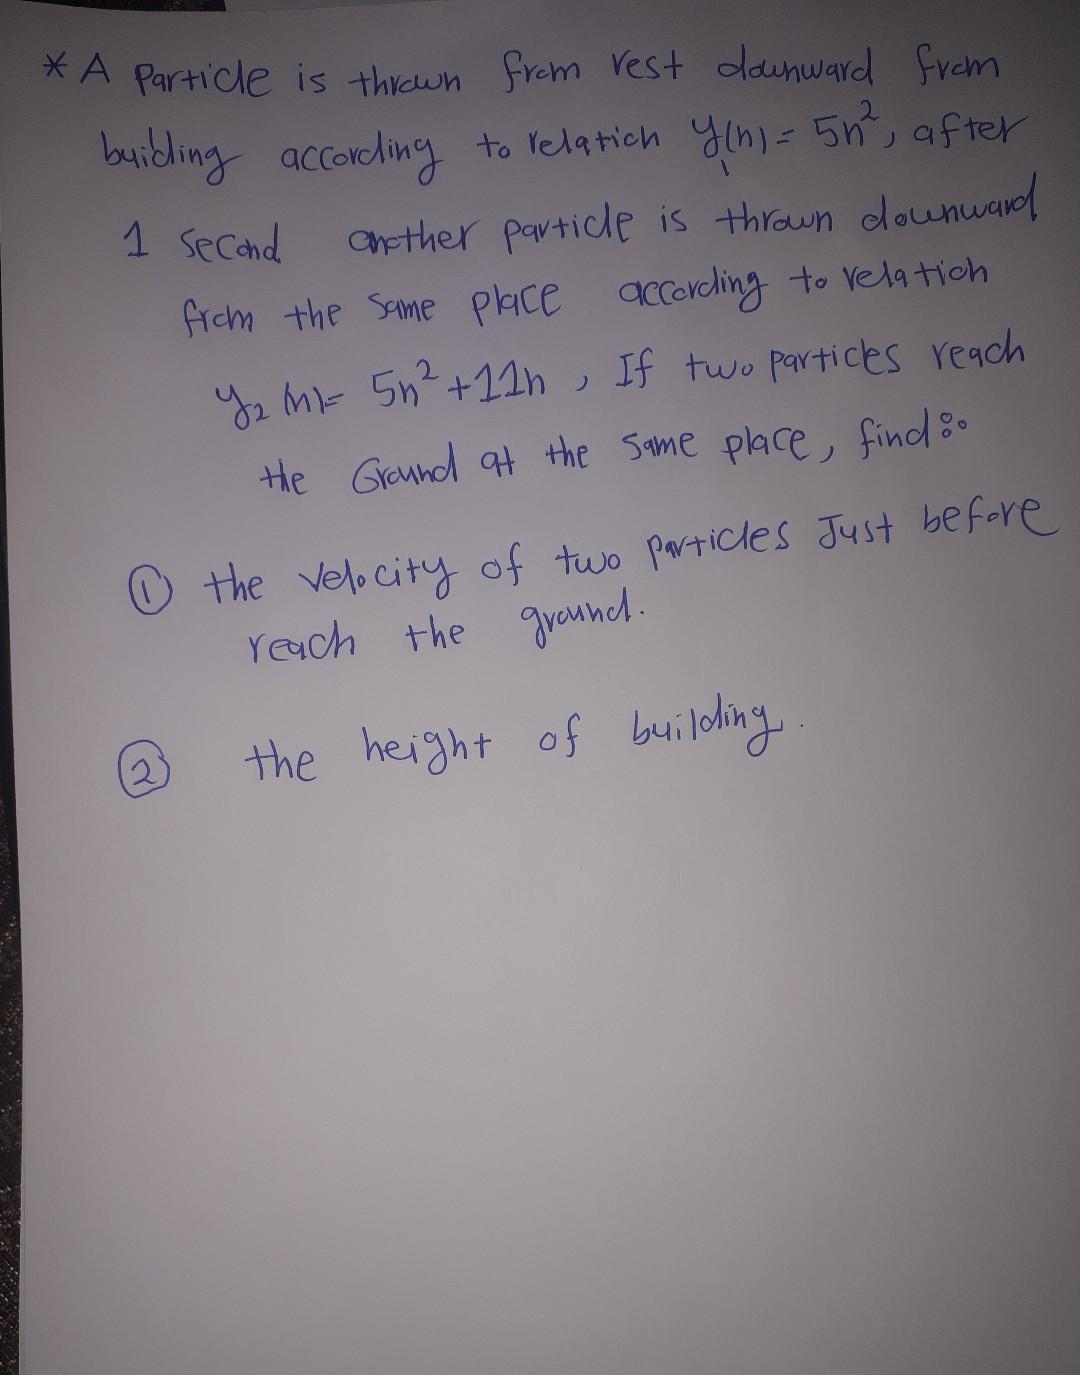 * A Particle is thrown from rest downward from
building according to relation y₁(n) = 5n², after
1 second another particle is thrown downward
from the same place according to relation
y₂(n) = 5n² + 11n , If two particles reach
the Ground at the same place, find :
① the velocity of two particles Just before
reach the ground.
② the height of building.